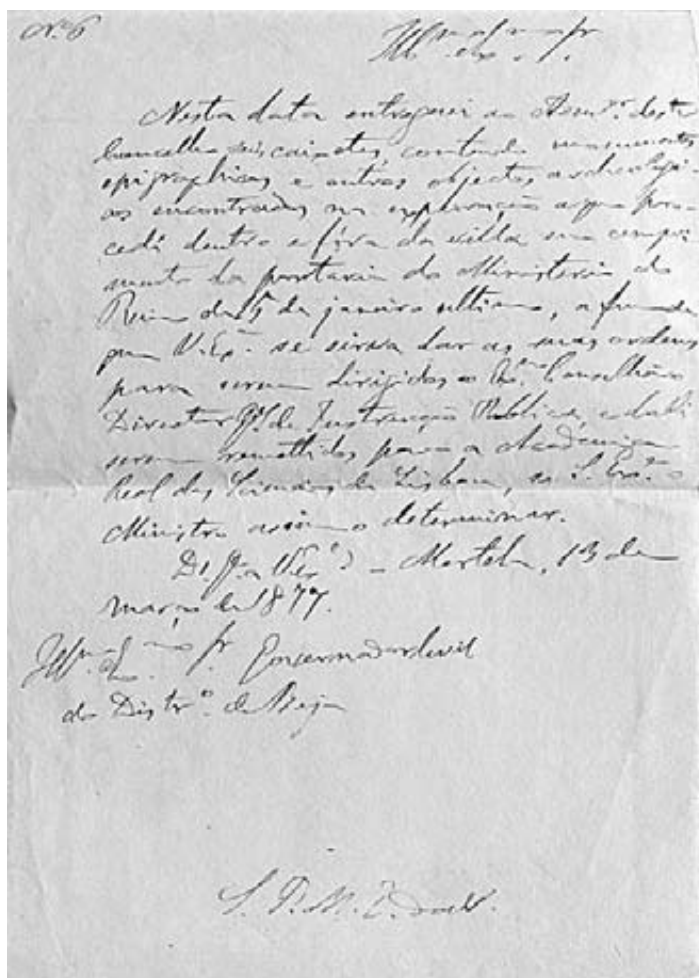 Nº 6
Illmo Exmo Sr
Nesta data entreguei ao Admor. deste
Concelho seis caixotes, contendo monumentos
epigraphicos e outros objectos archeologi-
cos encontrados na exploração a que pro-
cedi dentro e fóra da villa em cumpri-
mento da portaria do Ministerio do
Reino de 5 de janeiro ultimo, a fim de
que V. Exª. se sirva dar as suas ordens
para serem dirigidos ao Exmo Conselheiro
Director Gl de Instrucção Publica, e dali
serem remettidos para a Academia
Real das Sciencias de Lisboa, se S. Exª. o
Ministro assim o determinar.
Ds. Ge. a V. Exª. - Mertola, 13 de
março de 1877.
Illmo Exmo Sr. Governador Civil
do Distrº. de Beja
S. P. M. E.